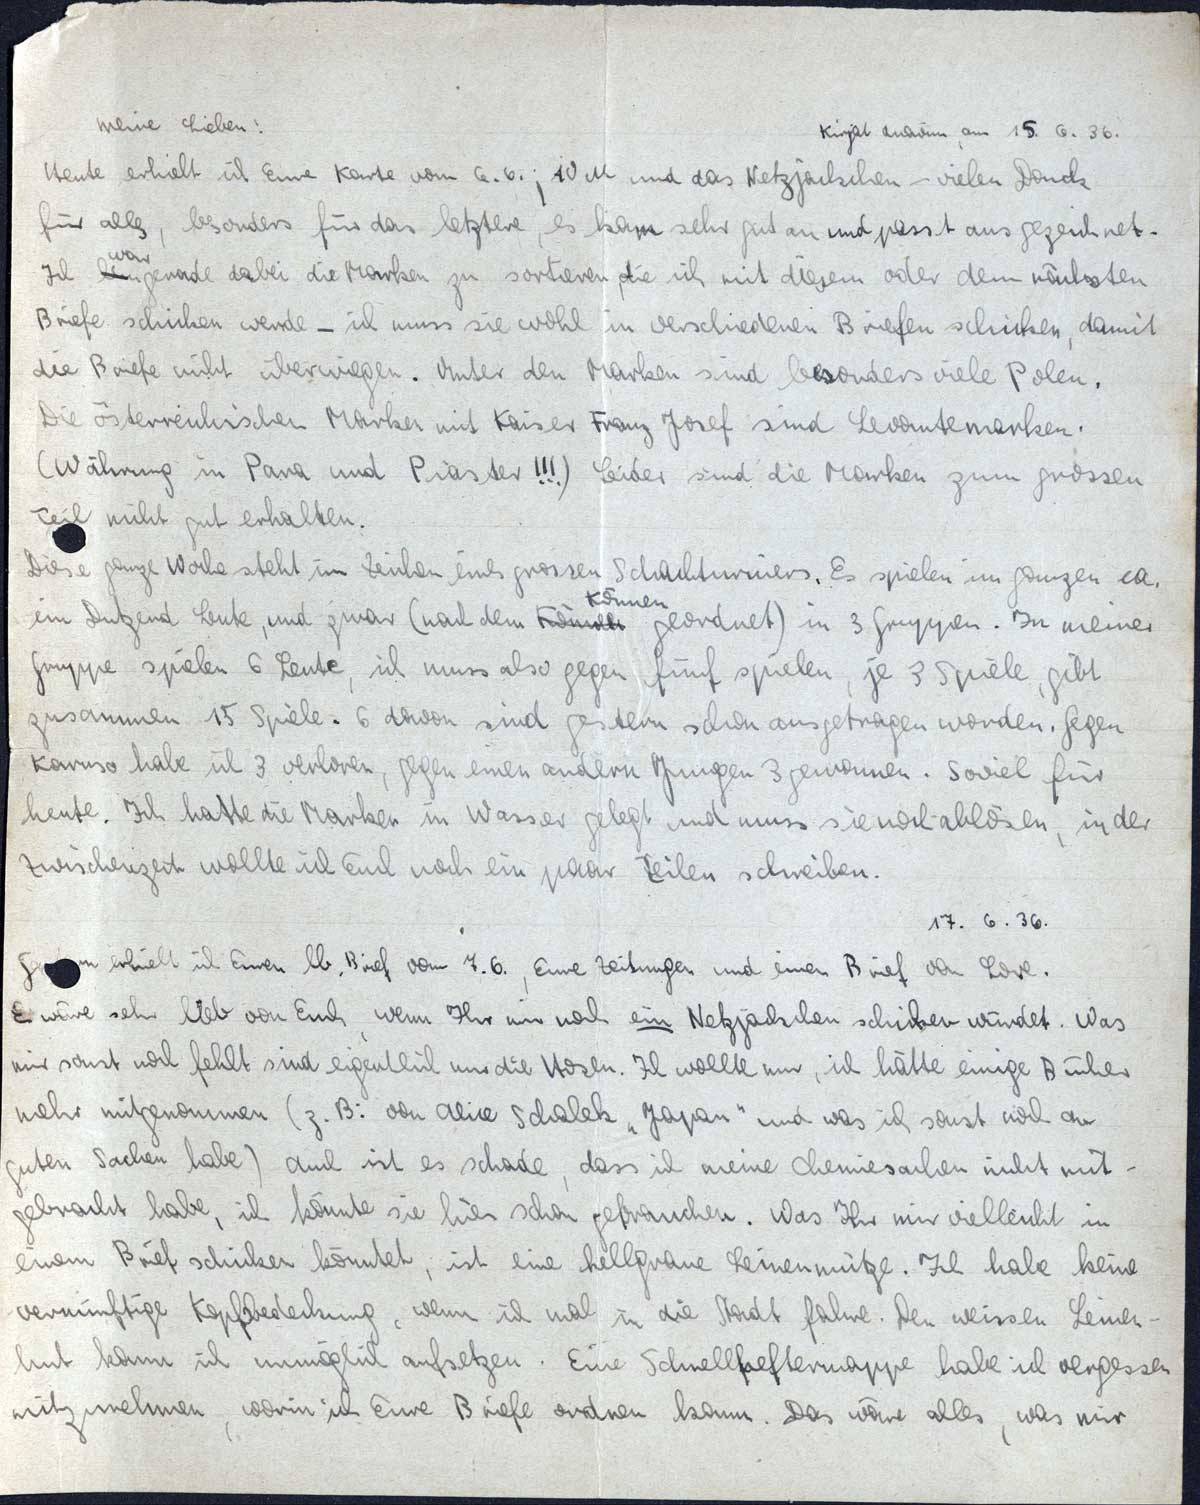 Meine Lieben!
Kirjat Anavim, am 15. 6. 36.
Heute erhielt ich Eure Karte vom 6.6.; 10 M und das Netzjäckchen – vielen Dank
für alles, besonders für das letztere, es kam sehr gut an und passt ausgezeichnet.
Ich war gerade dabei die Marken zu sortieren, die ich mit diesem oder dem nächsten
Briefe schicken werde – ich muss sie wohl in verschiedenen Briefen schicken, damit
die Briefe nicht überwiegen. Unter den Marken sind besonders viele Polen.
Die österreichischen Marken mit Kaiser Franz Josef sind Levantemarken.
(Währung in Para und Piaster!!!) Leider sind die Marken zum grossen
Teil nicht gut erhalten.
Diese ganze Woche steht im Zeichen eines grossen Schachturniers. Es spielen im ganzen ca.
ein Dutzend Leute, und zwar (nach dem Können geordnet) in 3 Gruppen. In meiner
Gruppe spielen 6 Leute, ich muss also gegen fünf spielen, je 3 Spiele, gibt
zusammen 15 Spiele. 6 davon sind gestern schon ausgetragen worden. Gegen
Karuso habe ich 3 verloren, gegen einen andern Jungen 3 gewonnen. Soviel für
heute. Ich hatte die Marken in Wasser gelegt und muss sie noch ablösen, in der
Zwischenzeit wollte ich Euch noch ein paar Zeilen schreiben.
17. 6. 36.
erhielt ich Euren lb. Brief vom 7.6., Eure Zeitungen und einen Brief von Lore.
Es wäre sehr lieb von Euch, wenn Ihr mir noch ein Netzjäckchen schicken würdet. Was
mir sonst noch fehlt sind eigentlich nur die Hosen. Ich wollte nur, ich hätte einige Bücher
mehr mitgenommen (z.B: von Alice Schalek „Japan" und was ich sonst noch an
guten Sachen habe) Auch ist es schade, dass ich meine Chemiesachen nicht mit-
gebracht habe, ich könnte sie hier schon gebrauchen. Was Ihr mir vielleicht in
einem Brief schicken könntet, ist eine hellgraue Leinenmütze. Ich habe keine
vernünftige Kopfbedeckung, wenn ich mal in die Stadt fahre. Den weissen Leinen-
hut kann ich unmöglich aufsetzen. Eine Schnellheftermappe habe ich vergessen
mitzunehmen, worin ich Eure Briefe ordnen kann. Das wäre alles, was mir